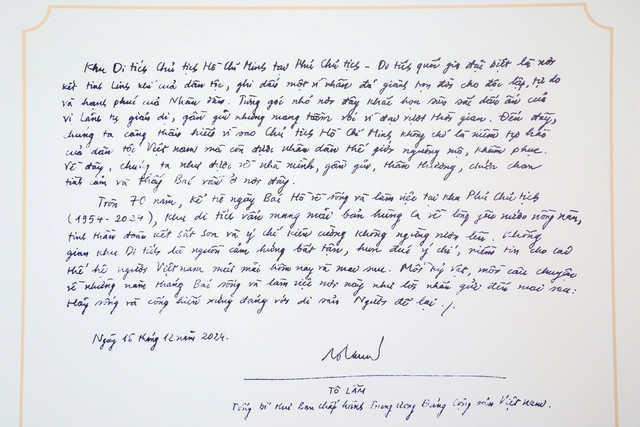 Khu Di tích Chủ tịch Hồ Chí Minh tại Phủ Chủ tịch - Di tích quốc gia đặc biệt là nơi
kết tinh linh khí của dân tộc, ghi dấu một vĩ nhân đã giành trọn đời cho độc lập, tự do
và hạnh phúc của Nhân dân. Từng góc nhỏ nơi đây khắc họa sâu sắc dấu ấn của
vị Lãnh tụ giản dị, gần gũi nhưng mang tầm vóc vĩ đại vượt thời gian. Đến đây,
chúng ta càng thấu hiểu vì sao Chủ tịch Hồ Chí Minh không chỉ là niềm tự hào
của dân tộc Việt Nam mà còn được nhân dân thế giới ngưỡng mộ, khâm phục.
Về đây, chúng ta như được về nhà mình, gần gũi, thân thương, chứa chan
tình cảm và thấy Bác vẫn ở nơi đây.
Tròn 70 năm, kể từ ngày Bác Hồ về sống và làm việc tại Khu Phủ Chủ tịch
(1954-2024), Khu di tích vẫn mang mãi bản hùng ca về lòng yêu nước nồng nàn,
tinh thần đoàn kết sắt son và ý chí kiên cường không ngừng vươn lên. Không
gian Khu Di tích là nguồn cảm hứng bất tận, hun đúc ý chí, niềm tin cho các
thế hệ người Việt Nam mãi mãi hôm nay và mai sau. Mỗi kỷ vật, mỗi câu chuyện
về những năm tháng Bác sống và làm việc nơi này như lời nhắn gửi đến mai sau:
Hãy sống và cống hiến xứng đáng với di sản Người để lại ./.
Ngày 16 tháng 12 năm 2024.
TÔ LÂM
Tổng Bí thư Ban Chấp hành Trung ương Đảng Cộng sản Việt Nam.